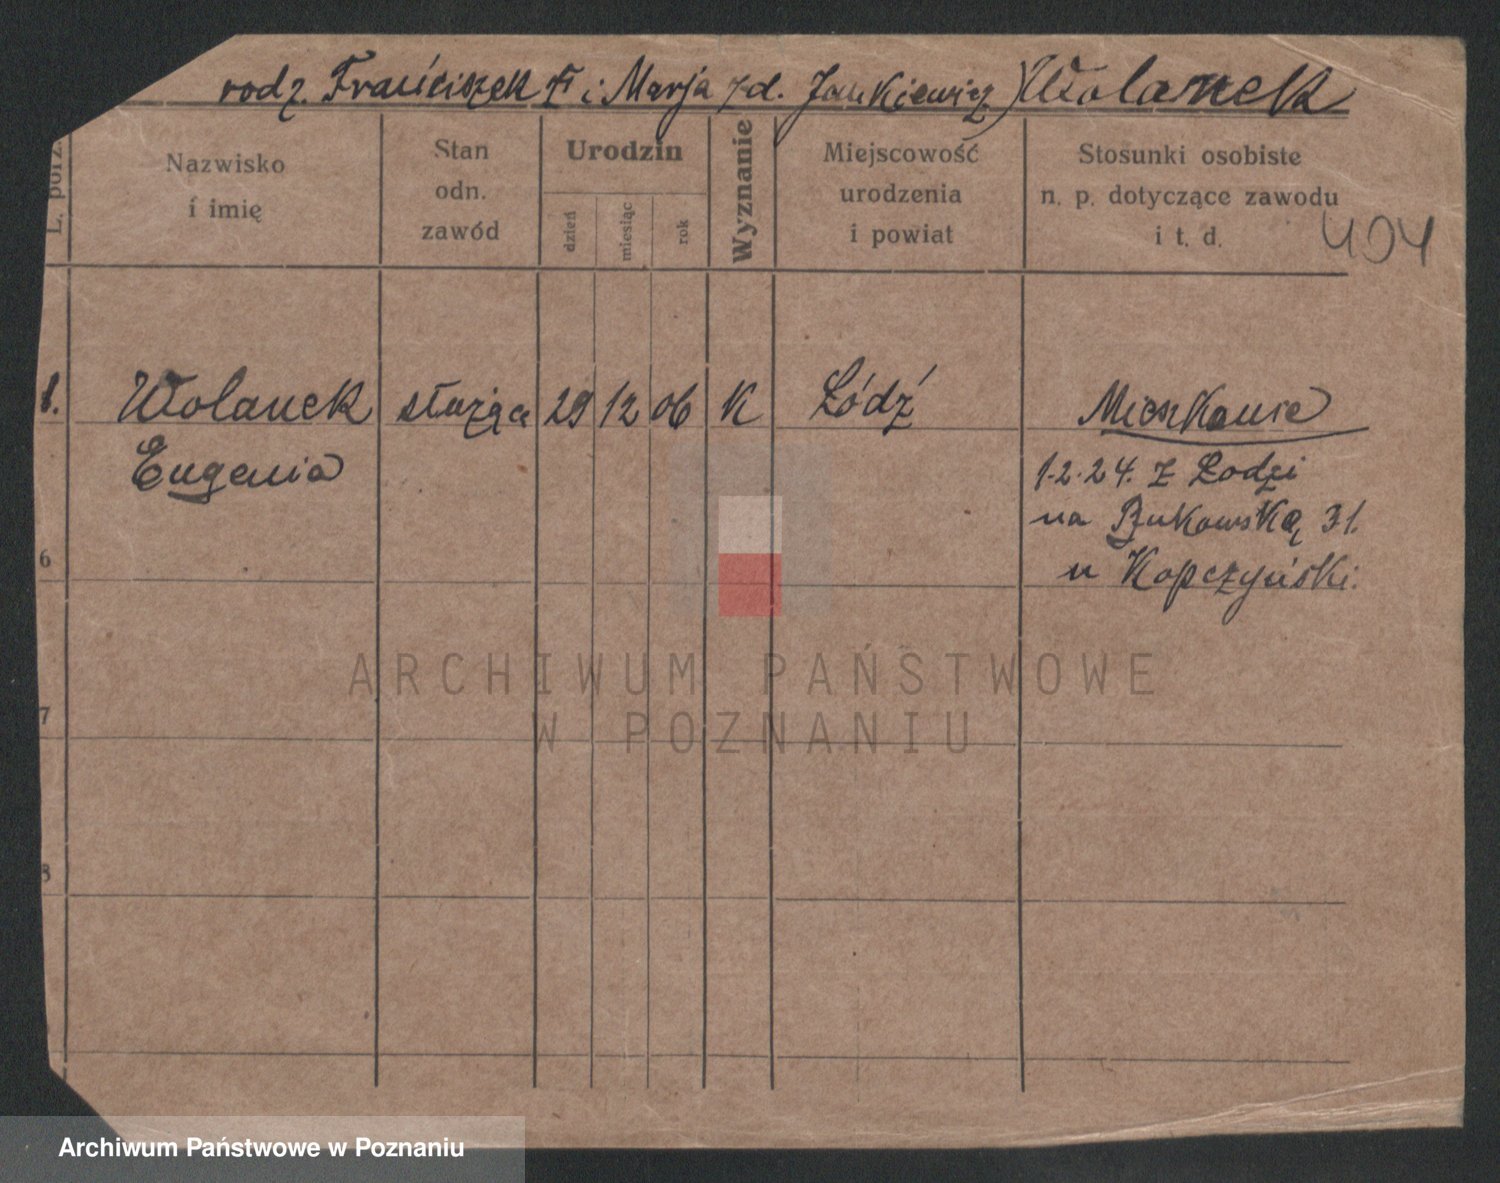 rodz. Franciszek F i Marja zd. Jankiewicz) Wolanek
L. porz.
Nazwisko
i imię
Stan
odn.
zawód
Urodzin
dzień
miesiąc
rok
Wyznanie
Miejscowość
urodzenia
i powiat
Stosunki osobiste
n. p. dotyczące zawodu
i t. d.
404
1. Wolanek służąca 29 12 06 K Łódź Mieszkanie
Eugenia
1.2.24. z Łodzi
na Bukowską 31.
u Kopczyński.
6
7
8
ARCHIWUM PAŃSTWOWE
W POZNANIU
Archiwum Państwowe w Poznaniu